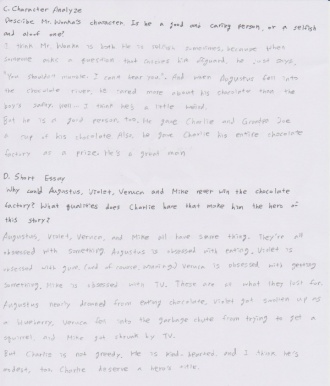 C. Character Analyze
Describe Mr. Wonka's character. Is he a good and caring person, or a selfish
and aloof one?
I think Mr. Wonka is both. He is selfish sometimes, because when
someone asks a question that he just says,
"You shouldn't mumble, I can't hear you". And when Augustus fell into
the chocolate river, he cared more about his chocolate than the
boy's safety. Well- I think he's a little
But he is a good person, too. He gave Charlie and Grandpa Joe
a cup of his chocolate. Also, he gave Charlie his entire chocolate
factory as a prize. He's a great man.
D. Short Essay
Why could Augustus, Violet, Veruca and Mike never win the chocolate
factory? What qualities does Charlie have that make him the hero of
this story?
Augustus, Violet, Veruca, and Mike all have same thing. They're all
obsessed with something. Augustus is obsessed with eating, Violet is
obsessed with gum, (and of course, ) Veruca is obsessed with getting
something, Mike is obsessed with TV. These are what they lost for.
Augustus nearly drowned from eating chocolate, Violet got swollen up as
a blueberry, Veruca fell into the garbage chute from trying to get a
squirrel, and Mike got shrunk by TV.
But Charlie is not greedy. He is kind-hearted, and I think he's
modest, too. Charlie deserve a hero's title.